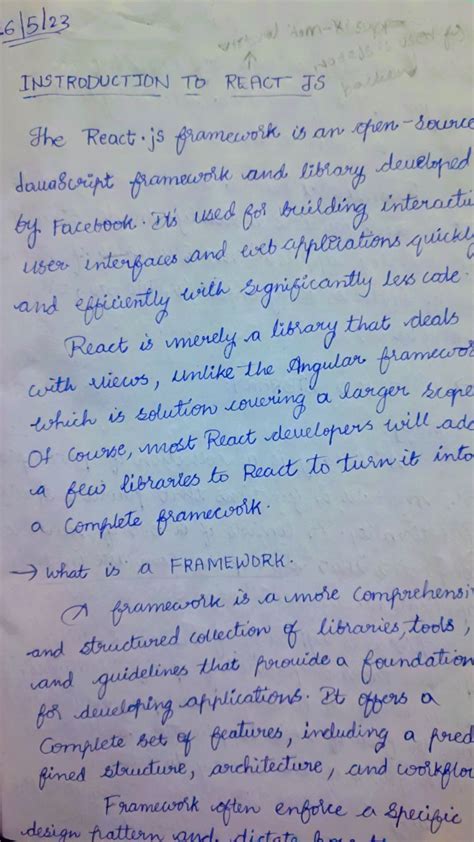 6/5/23
INSTRODUCTION TO REACT JS
The React.js framework is an open-source
JavaScript framework and library developed
by Facebook. It's used for building interactiv
user interfaces and web applications quickly
and efficiently with significantly less code.
React is merely a library that deals
with views, unlike the Angular framewor
which is solution covering a larger scope
Of Course, most React developers will add
a few libraries to React to turn it into
a Complete framework.
→ What is a FRAMEWORK.
A framework is a more Comprehensi
and structured collection of libraries, tools,
and guidelines that provide a foundation
for developing applications. It offers a
Complete set of features, including a pred
fined structure, architecture, and workflow
Framework often enforce a specific
design pattern and dictate